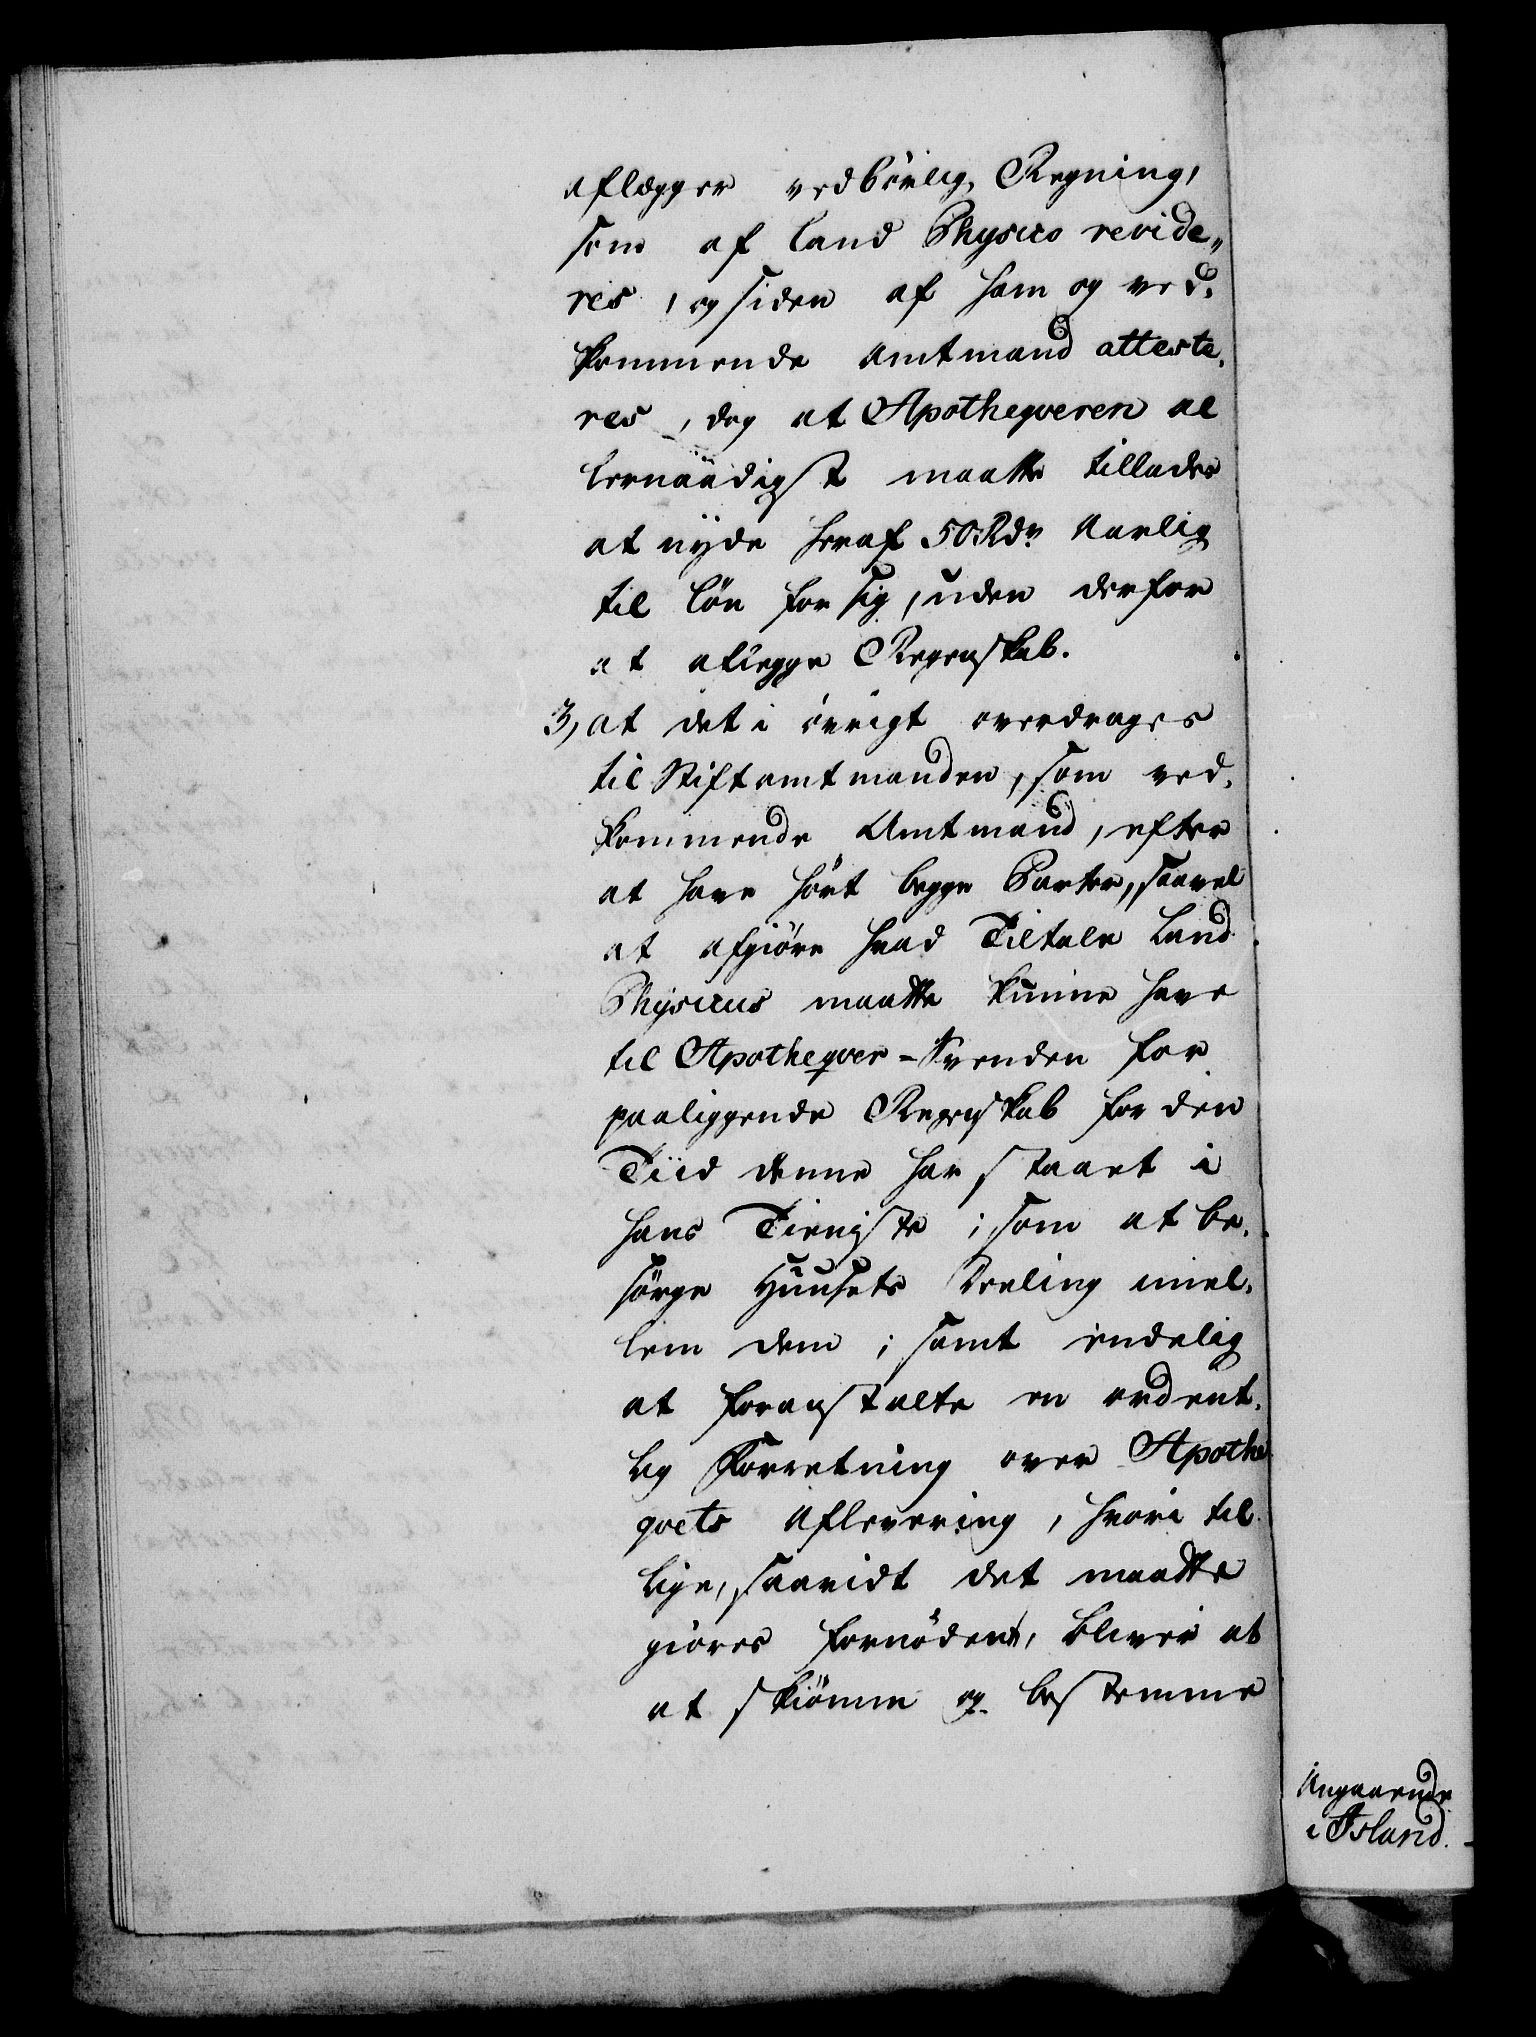 aflægger vedbörlig Regning,
som af Land Physico revide„
res, og siden af ham og ved,
kommende Amtmand atteste,
res, dog at Apotheqveren al
lernaadigst maatte tillades
at nyde heraf 50 Rdr Aarlig
til Lön for sig, uden derfor
at aflegge Regenskab.
3, at det i övrigt overdrages
til Stiftamtmanden, som ved,
kommende Amtmand, efter
at have hört begge Parter, saavel
at afgiöre hvad Tiltale Land
Physicus maatte kunne have
til Apotheqver-Svenden for
paaliggende Regnskab for den
Tiid denne har staaet i
hans Tieniste; som at be,
sörge Huusets Deeling imel,
lem dem; samt endelig
at foranstalte en ordent,
lig Forretning over Apothe
qvets Aflevering, hvori til
lige, saavidt det maatte
giöres fornödent, bliver at
at skiönne og bestemme
Angaaende
i Island.